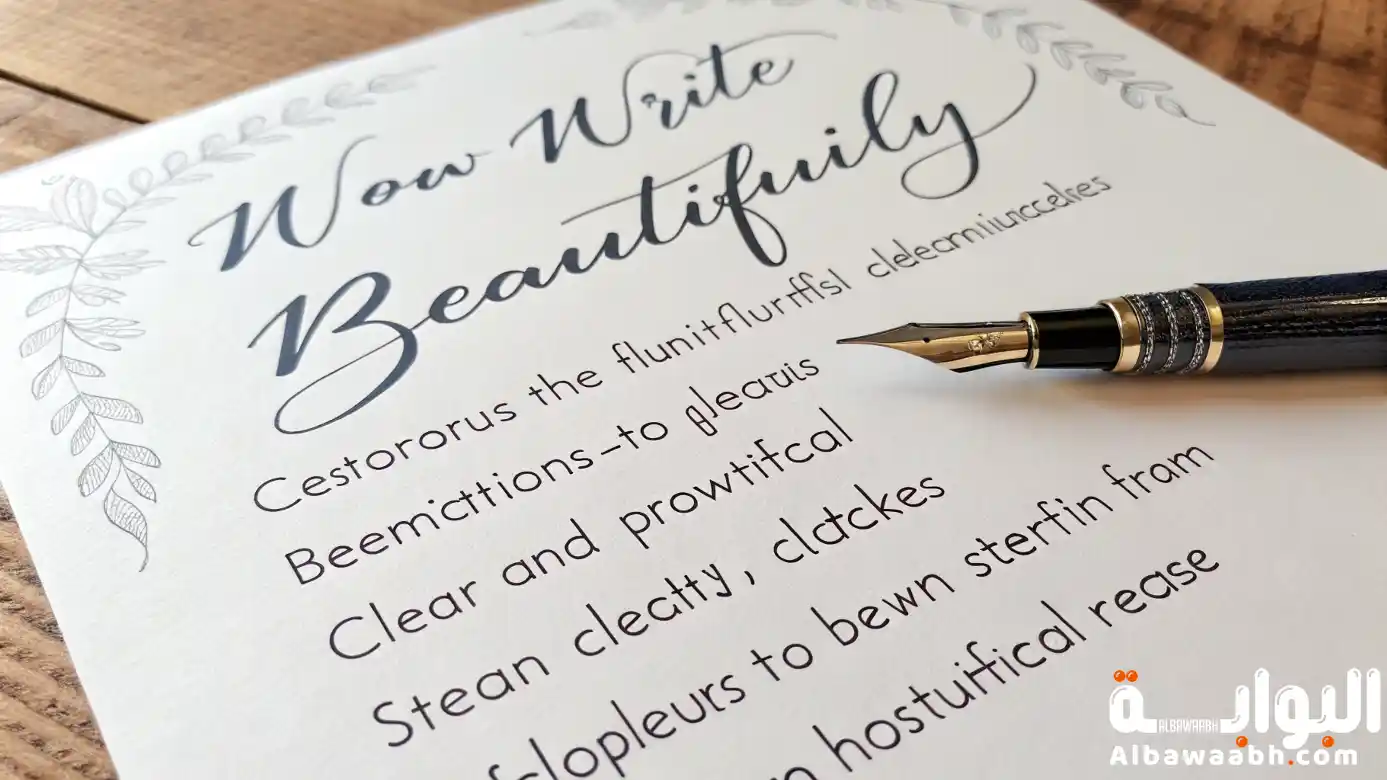 Wow Write
Beautifuily
Cestororus the flunitflurtffsl clelearniiunccelses
Beemicttions-to gleauis
Clear and prowtifcal
Stean cleatty, clatckes
lopleurs to bewn sterfin fram
hostuifical rease
البوابة
ALBAWAABH
Albawaabh.com